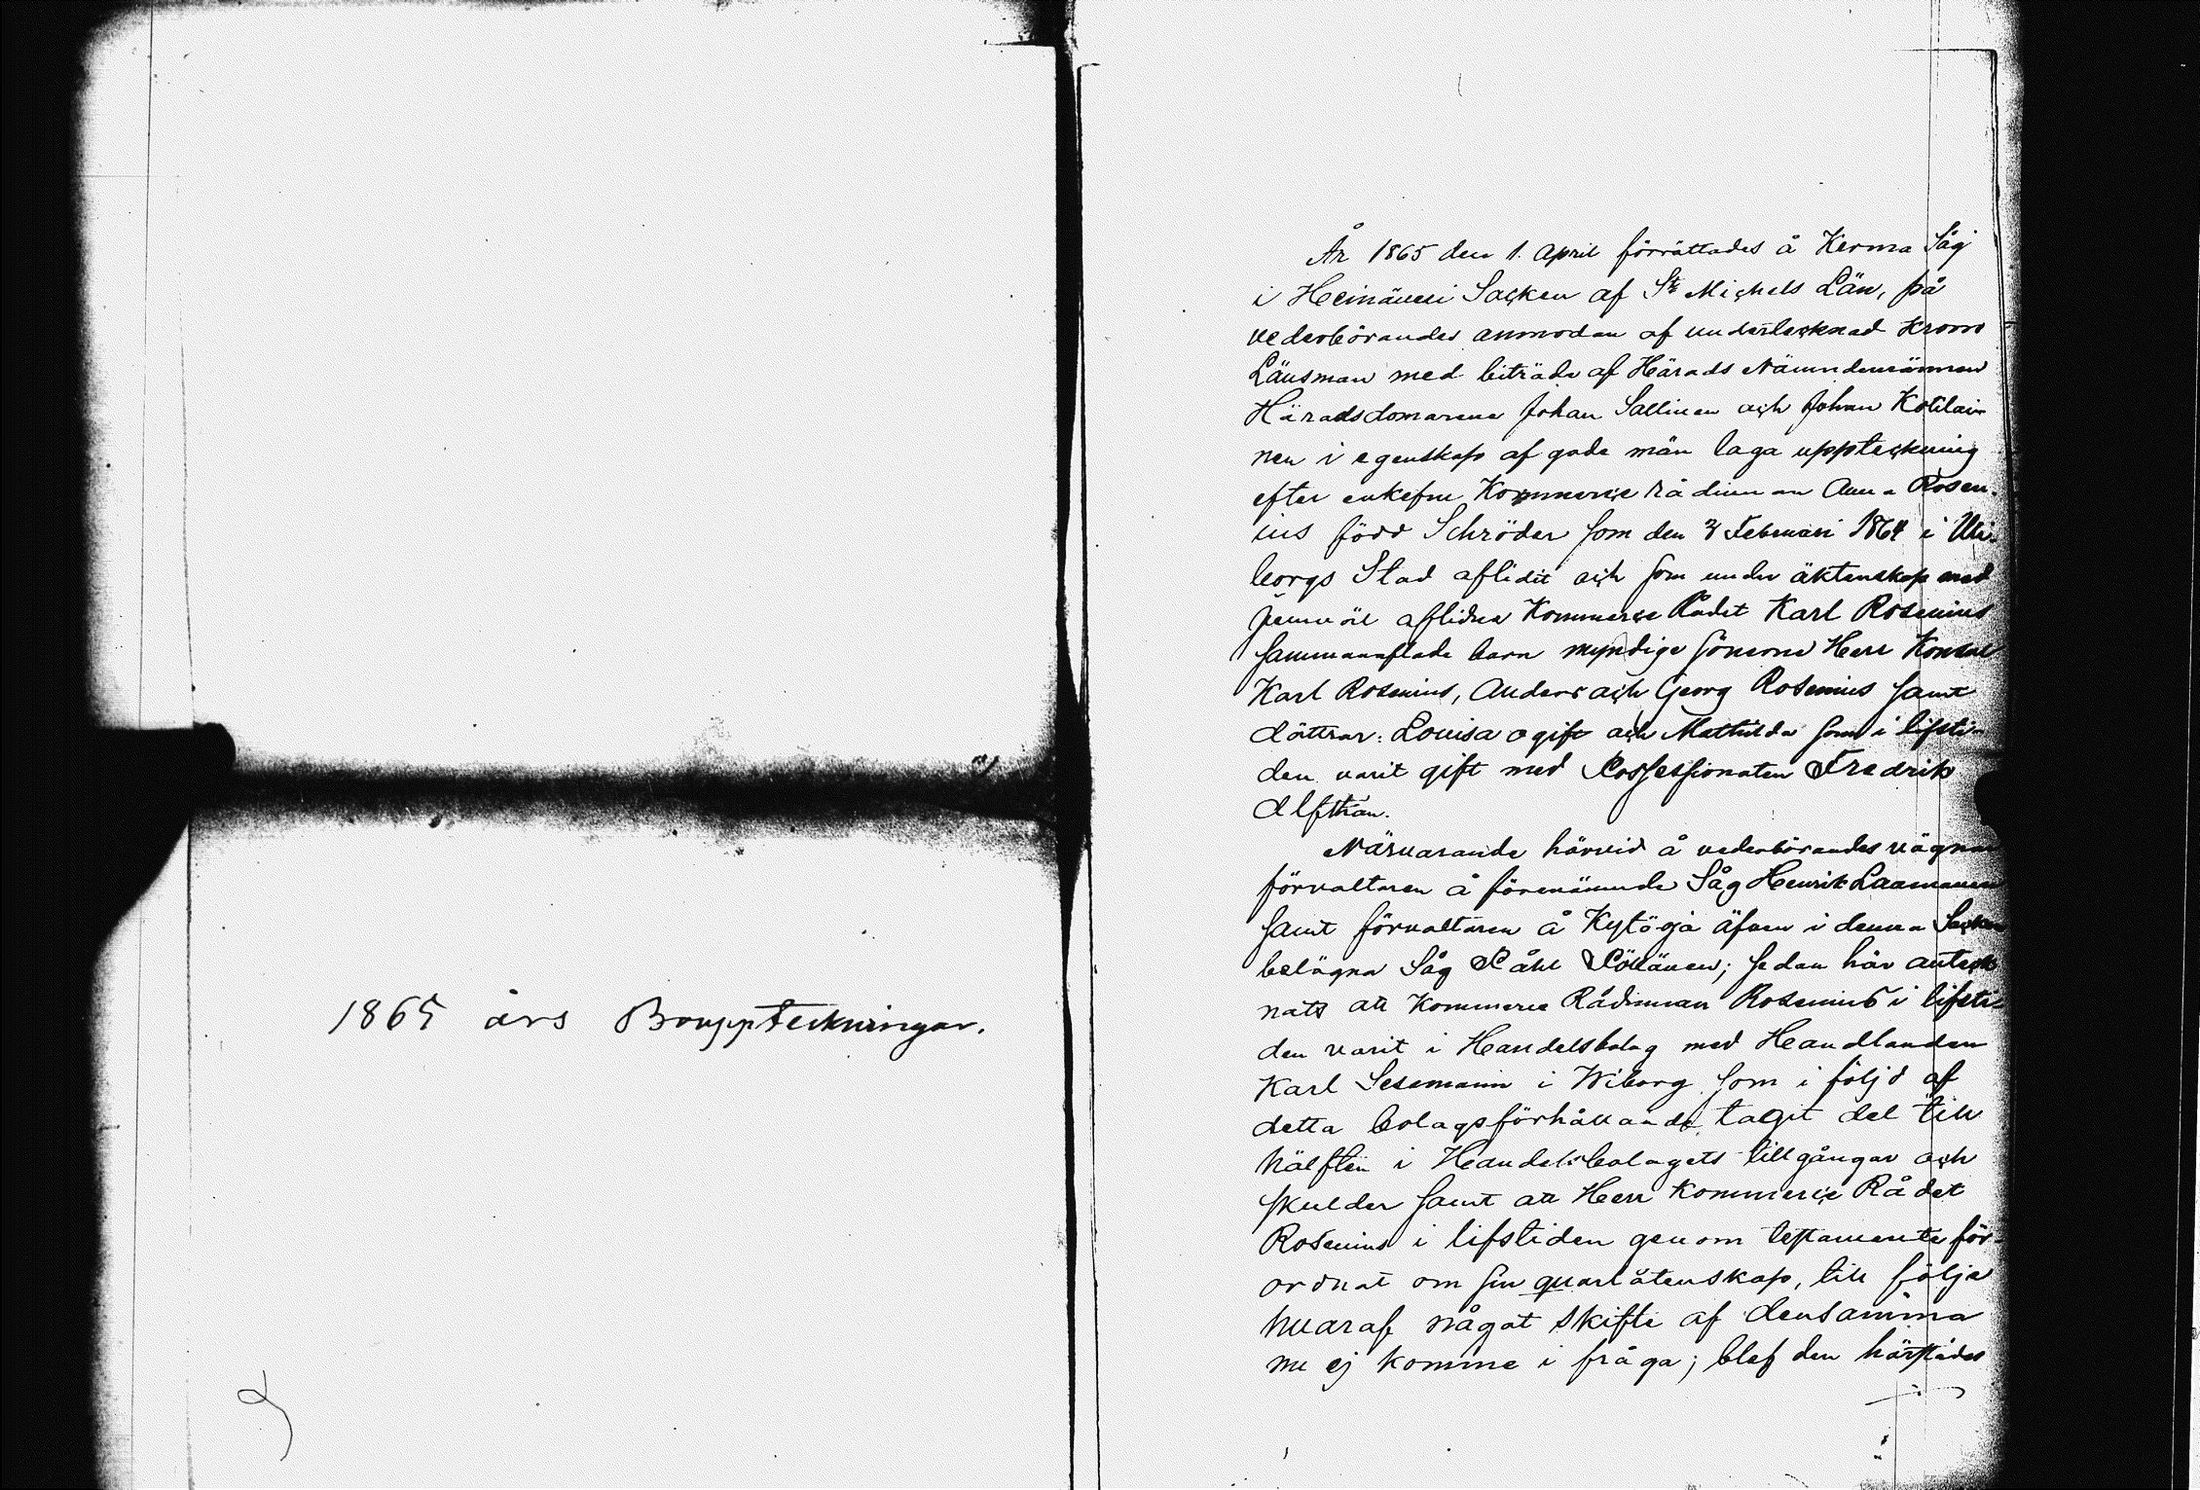 1865 års Bouppteckningar.
År 1865 den 1. April förrättades å Kerma Såg
i Heinävesi Socken af St Michels Län, på
vederbörandes anmodan af undertecknad Krono
Länsman med biträde af Härads Nämndemännen
Häradsdomarene Johan Sallinen och Johan Kotilai-
nen i egenskap af gode män laga uppteckning
efter enkefru Kommerce Rådinnan Anna Rosen-
ius född Schröder som den Februari 1864 i Wi-
borgs Stad aflidit och som under äktenskap med
jemväl aflidna Kommerce Rådet Karl Rosenius
sammanaflade barn myndige sönerne Herr Konsul
Karl Rosenius, Anders och Georg Rosenius samt
döttrar: Louisa ogift och Mathilda som i lifsti-
den varit gift med Possessionaten Fredrik
Alfthan.
Närvarande härvid å vederbörandes vägnar
förvaltaren å förenämnde Såg Henrik Laamanen
samt förvaltaren å Kytöoja äfven i denna Socken
belägna Såg Påhl Pöllänen; sedan här anteck-
nats att Kommerce Rådinnan Rosenius i lifsti-
den varit i Handelsbolag med Handlanden
Karl Sesemann i Wiborg som i följd af
detta bolagsförhållande tagit del till
hälften i Handelsbolagets tillgångar och
skulder samt att Herr Kommerce Rådet
Rosenius i lifstiden genom testamente för-
ordnat om sin qvarlåtenskap, till följe
hvaraf något skifte af densamma
nu ej komme i fråga; blef den härstädes